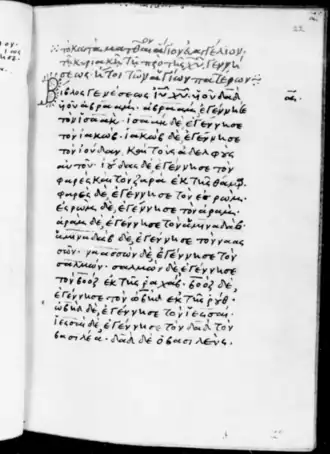 ἐκ τοῦ κατὰ ματθαῖον ἁγίου εὐαγγελίου
τῇ κυριακῇ τῇ πρὸ τῆς χ̅υ̅ γεννή
σεως· ἤτοι τῶν ἁγίων πατέρων
Βίβλος γενέσεως ι̅υ̅ χ̅υ̅, υἱοῦ δα̅δ̅
υἱοῦ ἀβραάμ· ἀβραὰμ ἐγέννησε
τὸν ἰσαάκ· ἰσαὰκ δὲ ἐγέννησε
τὸν ἰακώβ· ἰακὼβ δὲ ἐγέννησε
τὸν ἰούδαν, καὶ τοὺς ἀδελφοὺς
αὐτοῦ· ἰούδας δὲ ἐγέννησε τὸν
φαρὲς καὶ τὸν ζαρὰ ἐκ τῆς θάμαρ·
φαρὲς δὲ ἐγέννησε τὸν ἐσρώμ·
ἐσρὼμ δὲ ἐγέννησε τὸν ἀράμ·
ἀρὰμ δὲ ἐγέννησε τὸν ἀμιναδάβ·
ἀμιναδὰβ δὲ ἐγέννησε τὸν ναας
σών· ναασσὼν δὲ ἐγέννησε τὸν
σαλμών· σαλμὼν δὲ ἐγέννησε
τὸν βοὸζ ἐκ τῆς ῥαχάβ· βοὸζ δὲ
ἐγέννησε τὸν ὠβὴδ ἐκ τῆς ῥούθ·
ὠβὴδ δὲ ἐγέννησε τὸν ἰεσσαί·
ἰεσσαὶ δὲ ἐγέννησε τὸν δα̅δ̅ τὸν
βασιλέα· δα̅δ̅ δὲ ὁ βασιλεὺς·